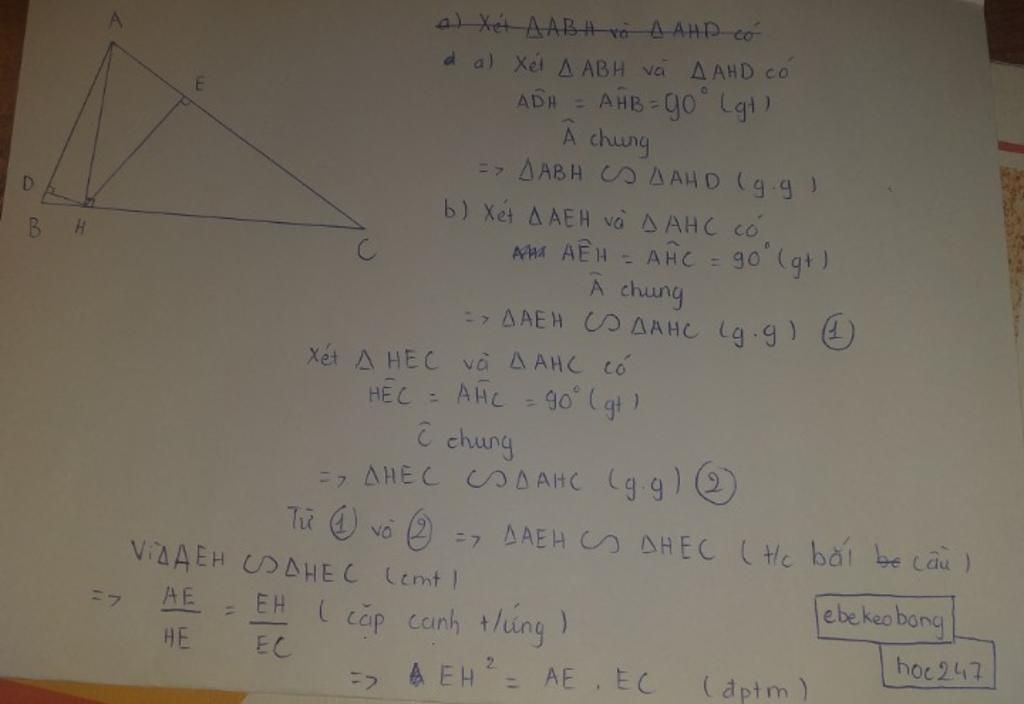 A
E
D
B
H
C
a) Xét ΔABH và ΔAHD có
d a) Xét ΔABH và ΔAHD có
AD̂H = AĤB = 90° (gt)
Â chung
=> ΔABH ∽ ΔAHD (g.g)
b) Xét ΔAEH và ΔAHC có
AÊH = AĤC = 90° (gt)
Â chung
=> ΔAEH ∽ ΔAHC (g.g) ①
Xét ΔHEC và ΔAHC có
HÊC = AĤC = 90° (gt)
Ĉ chung
=> ΔHEC ∽ ΔAHC (g.g) ②
Từ ① và ② => ΔAEH ∽ ΔHEC (t/c bắc cầu)
Vì ΔAEH ∽ ΔHEC (cmt)
=> AE/HE = EH/EC (cặp cạnh t/ứng)
=> EH² = AE . EC (đptm)
ebekeobong
hoc247